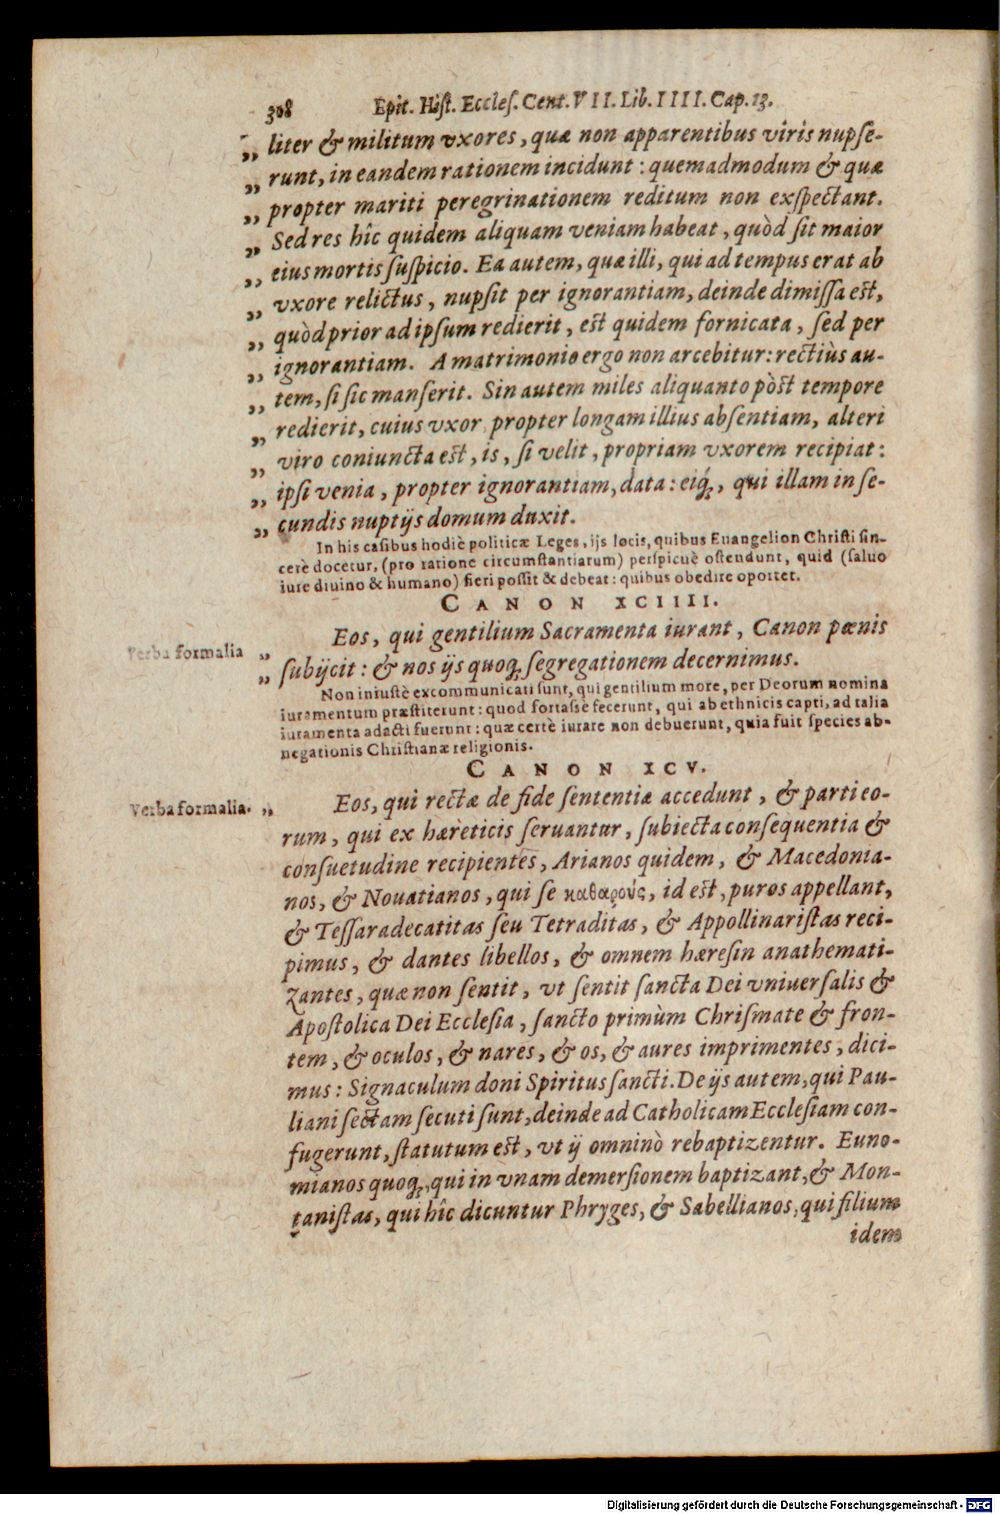 308 Epit. Hiſt. Eccleſ. Cent. VII. Lib. IIII. Cap. 13.
liter & militum vxores, quæ non apparentibus viris nupſe-
„ runt, in eandem rationem incidunt: quemadmodum & quæ
„ propter mariti peregrinationem reditum non exſpectant.
„ Sed res hîc quidem aliquam veniam habeat, quòd ſit maior
„ eius mortis ſuſpicio. Ea autem, quæ illi, qui ad tempus erat ab
„ vxore relictus, nupſit per ignorantiam, deinde dimiſſa eſt,
„ quòd prior ad ipſum redierit, eſt quidem fornicata, ſed per
„ ignorantiam. A matrimonio ergo non arcebitur: rectiùs au-
„ tem, ſi ſic manſerit. Sin autem miles aliquanto pòſt tempore
„ redierit, cuius vxor propter longam illius abſentiam, alteri
„ viro coniuncta eſt, is, ſi velit, propriam vxorem recipiat:
„ ipſi venia, propter ignorantiam, data: eiq́;, qui illam in ſe-
„ cundis nuptijs domum duxit.
In his caſibus hodiè politicæ Leges, ijs locis, quibus Euangelion Chriſti ſin-
cerè docetur, (pro ratione circumſtantiarum) perſpicuè oſtendunt, quid (ſaluo
iure diuino & humano) fieri poſſit & debeat: quibus obedire oportet.
CANON XCIIII.
Eos, qui gentilium Sacramenta iurant, Canon pœnis
Verba formalia „
„ ſubijcit: & nos ijs quoq; ſegregationem decernimus.
Non iniuſtè excommunicati ſunt, qui gentilium more, per Deorum nomina
iuramentum præſtiterunt: quod fortaſse fecerunt, qui ab ethnicis capti, ad talia
iuramenta adacti fuerunt: quæ certè iurare non debuerunt, quia fuit ſpecies ab-
negationis Chriſtianæ religionis.
CANON XCV.
Verba formalia. „ Eos, qui rectæ de fide ſententiæ accedunt, & parti eo-
rum, qui ex hæreticis ſeruantur, ſubiecta conſequentia &
conſuetudine recipientes, Arianos quidem, & Macedonia-
nos, & Nouatianos, qui ſe καθαρούς, id eſt, puros appellant,
& Teſſaradecatitas ſeu Tetraditas, & Appollinariſtas reci-
pimus, & dantes libellos, & omnem hæreſin anathemati-
zantes, quæ non ſentit, vt ſentit ſancta Dei vniuerſalis &
Apoſtolica Dei Eccleſia, ſancto primùm Chriſmate & fron-
tem, & oculos, & nares, & os, & aures imprimentes, dici-
mus: Signaculum doni Spiritus ſancti. De ijs autem, qui Pau-
liani ſectam ſecuti ſunt, deinde ad Catholicam Eccleſiam con-
fugerunt, ſtatutum eſt, vt ij omninò rebaptizentur. Euno-
mianos quoq;, qui in vnam demerſionem baptizant, & Mon-
taniſtas, qui hîc dicuntur Phryges, & Sabellianos, qui filium
idem
Digitalisierung gefördert durch die Deutsche Forschungsgemeinschaft - DFG